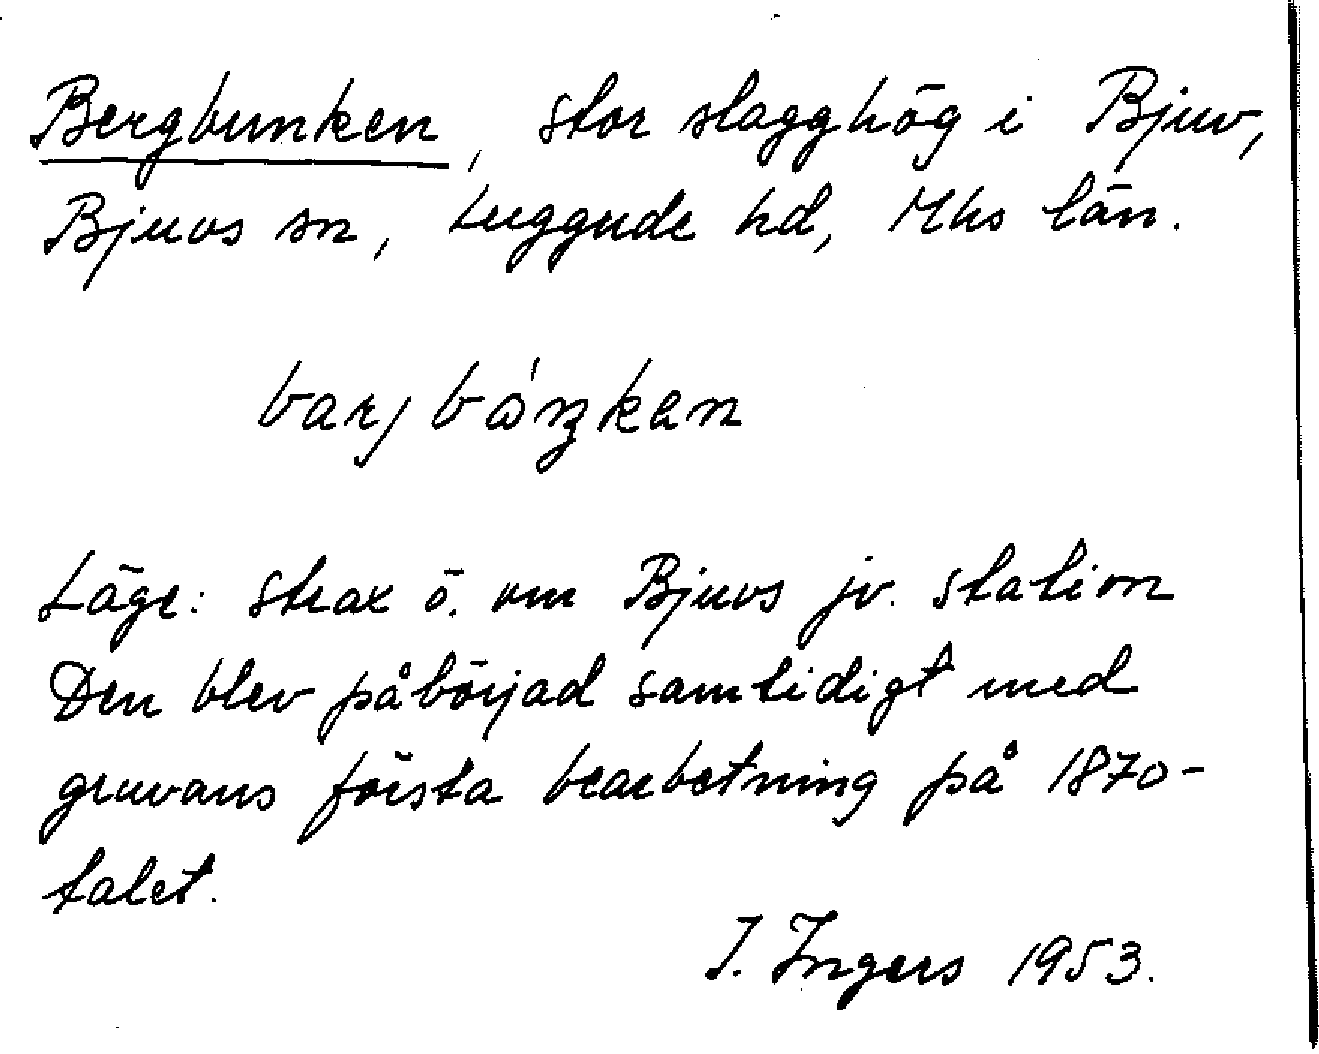 Bergbunken, stor slagghög i Bjuv,
Bjuvs sn, Luggude hd, Mhs län.
barjbåŋkən
Läge: Strax ö. om Bjuvs jv. station
Den blev påbörjad samtidigt med
gruvans första bearbetning på 1870-
talet.
I. Ingers 1953.